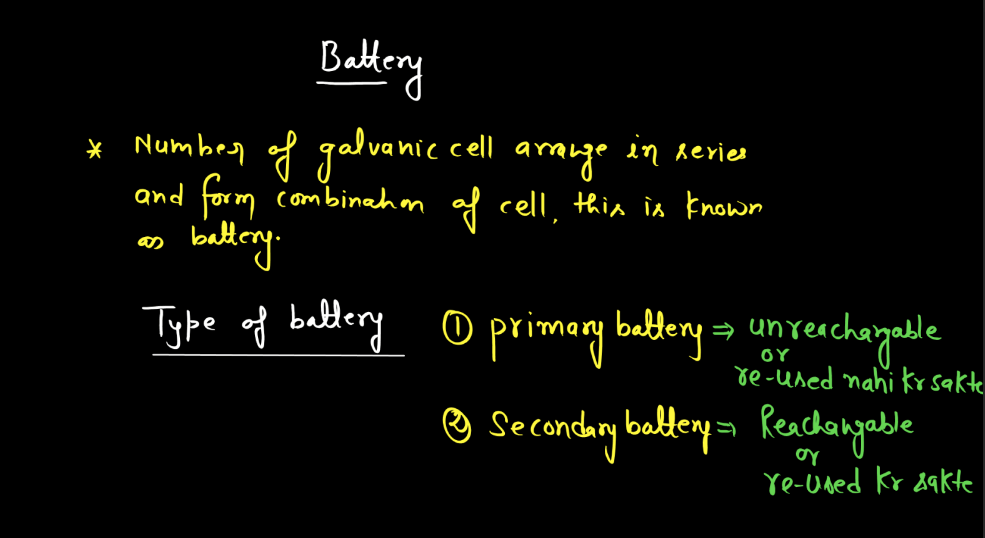 Battery
* Number of galvanic cell arrange in series
and form combination of cell, this is known
as battery.
Type of battery
① primary battery ⇒ unreachargable
or
re-used nahi kr sakte
② Secondary battery ⇒ Reachargable
or
re-used kr sakte